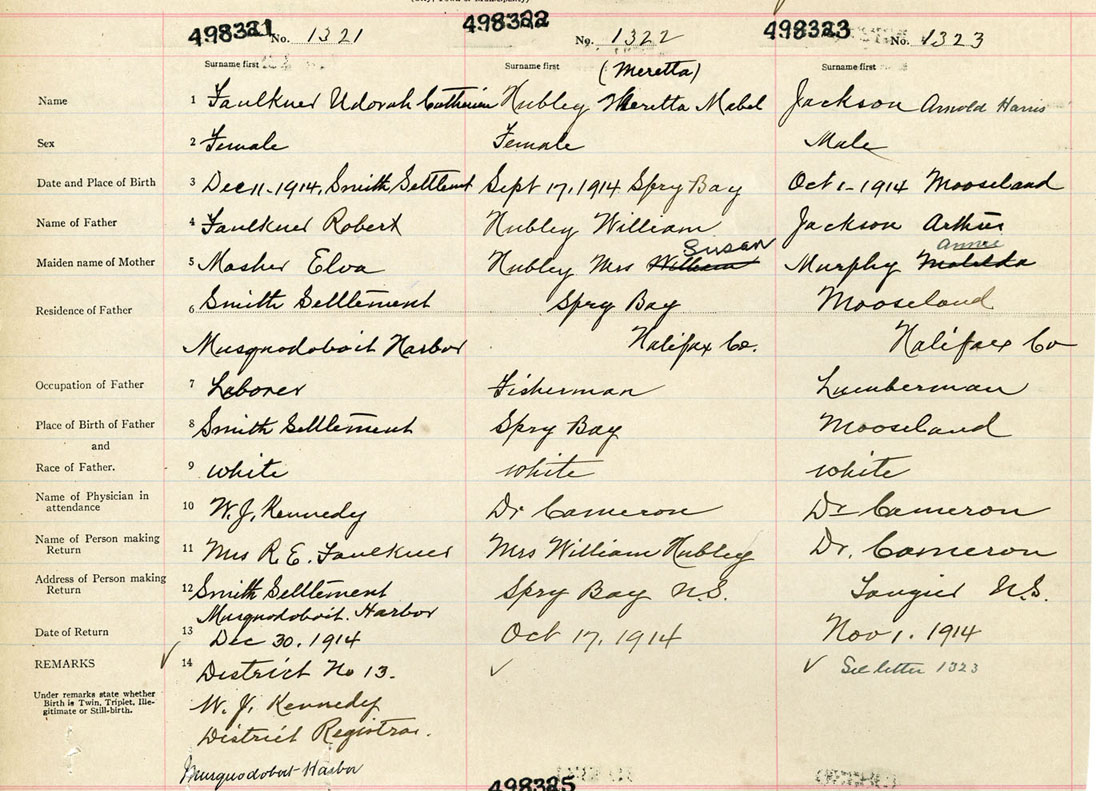 498321 No. 1321 498322 No. 1322 498323 No. 1323
Surname first Surname first (Meretta) Surname first
Name 1 Faulkner Udorah Catherine Hubley Meretta Mabel Jackson Arnold Harris
Sex 2 Female Female Male
Date and Place of Birth 3 Dec 11-1914, Smith Settlemt Sept 17, 1914 Spry Bay Oct 1-1914 Mooseland
Name of Father 4 Faulkner Robert Hubley William Jackson Arthur
Susan Annie
Maiden name of Mother 5 Mosher Elva Hubley Mrs William Murphy Matilda
Residence of Father 6 Smith Settlement Spry Bay Mooseland
Musquodoboit Harbor Halifax Co. Halifax Co
Occupation of Father 7 Laborer Fisherman Lumberman
Place of Birth of Father 8 Smith Settlement Spry Bay Mooseland
and
Race of Father. 9 white white white
Name of Physician in attendance 10 W. J. Kennedy Dr Cameron Dr Cameron
Name of Person making Return 11 Mrs R. E. Faulkner Mrs William Hubley Dr. Cameron
Address of Person making Return 12 Smith Settlement Spry Bay N.S. Tangier N.S.
Musquodoboit. Harbor
Date of Return 13 Dec 30. 1914 Oct 17, 1914 Nov 1. 1914
REMARKS 14 District No 13. See letter 1323
Under remarks state whether
Birth is Twin, Triplet, Ille-
gitimate or Still-birth.
W. J. Kennedy
District Registrar.
Musquodoboit Harbor
498325